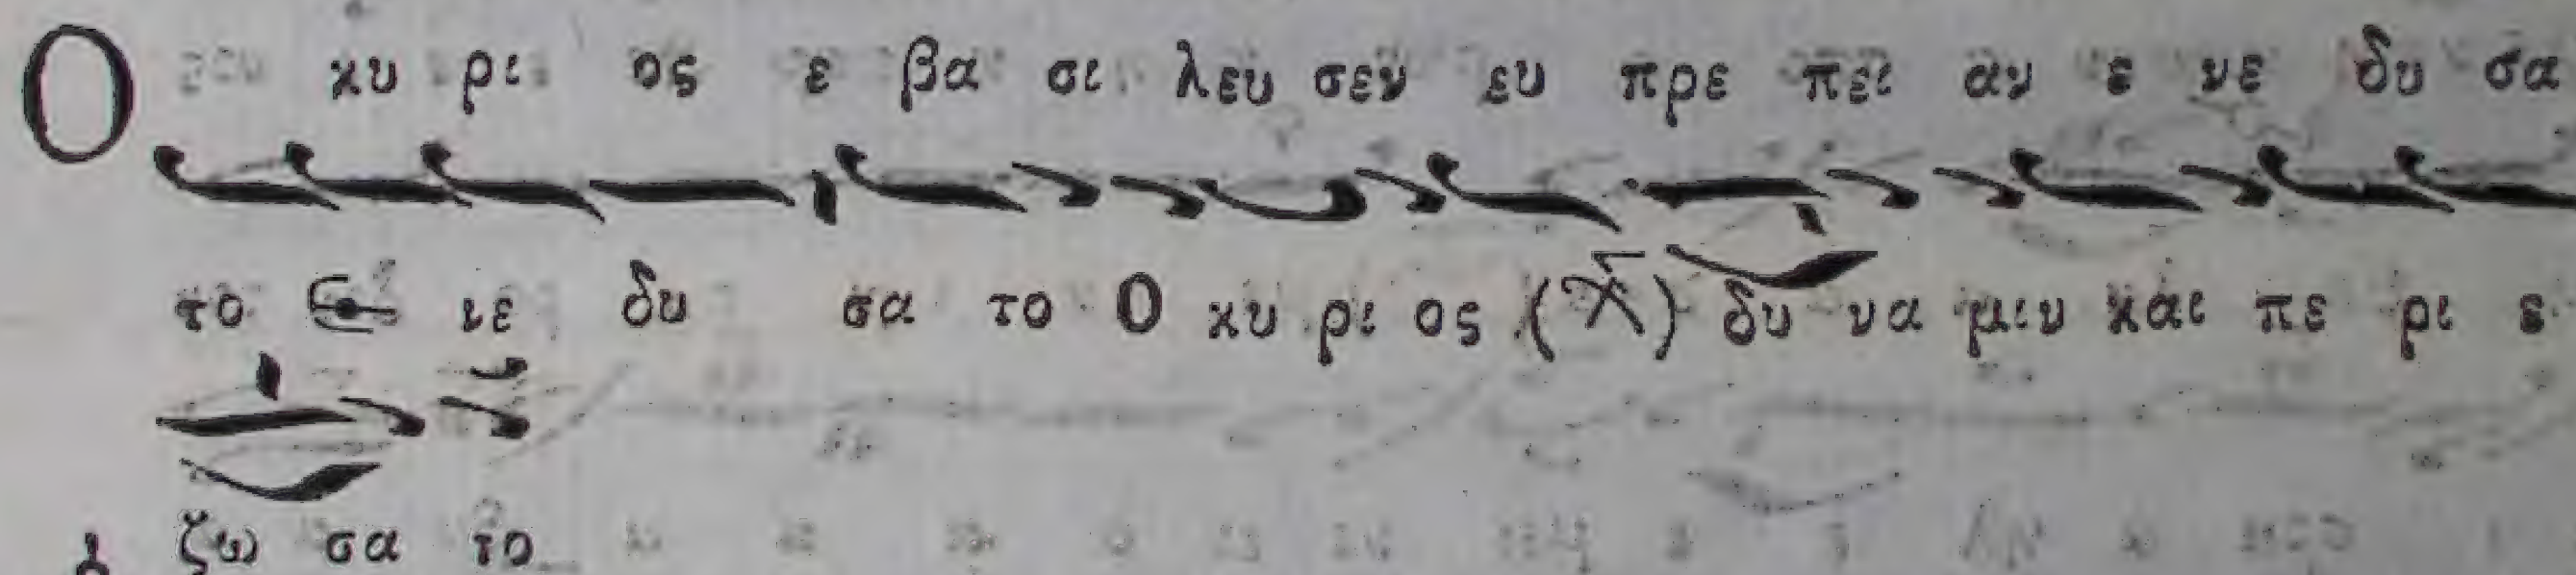 Ο κυ ρι ος ε βα σι λευ σεν ευ πρε πει αν ε νε δυ σα
το Ε νε δυ σα το Ο κυ ρι ος δυ να μιν και πε ρι ε
ζω σα το